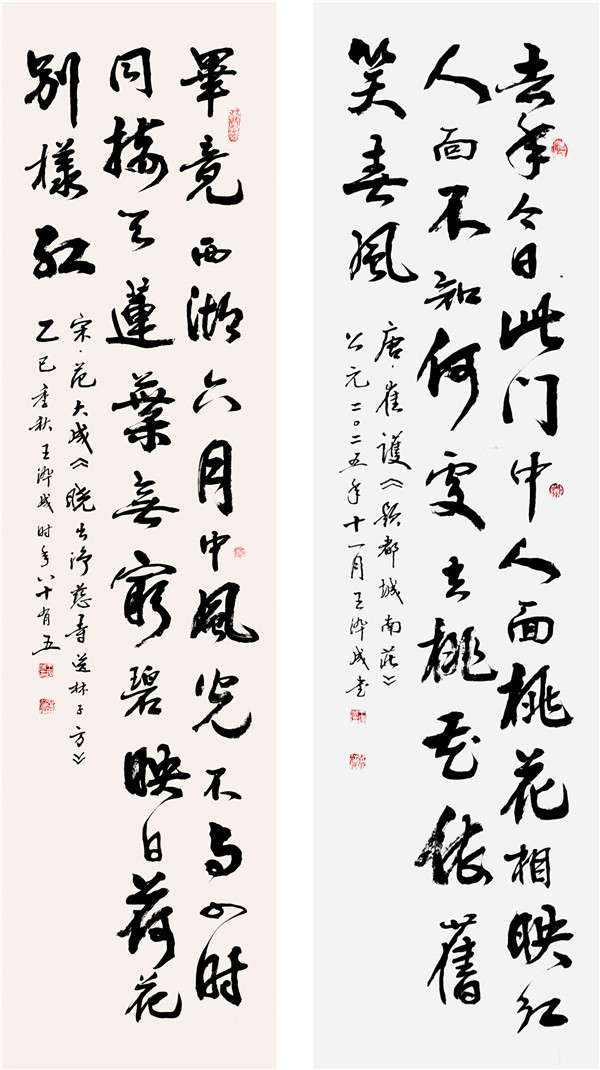 去年今日此门中人面桃花相映红
人面不知何處去桃花依舊
笑春風
唐·崔護《题都城南莊》
公元二〇二五年十一月王成书
畢竟西湖六月中風光不与四时
同接天蓮葉無窮碧映日荷花
别樣红
宋·范大成《晓出净慈寺送林子方》
乙巳季秋王成时年八十有五